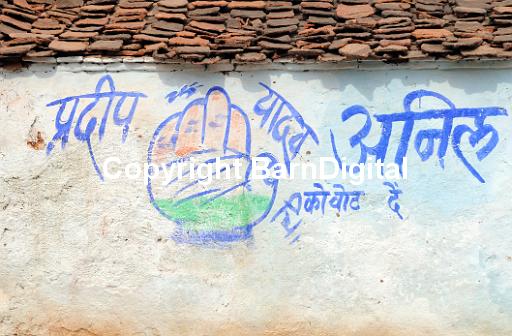 प्रदीप यादव अनिल
Copyright BarnDigital
को वोट दें